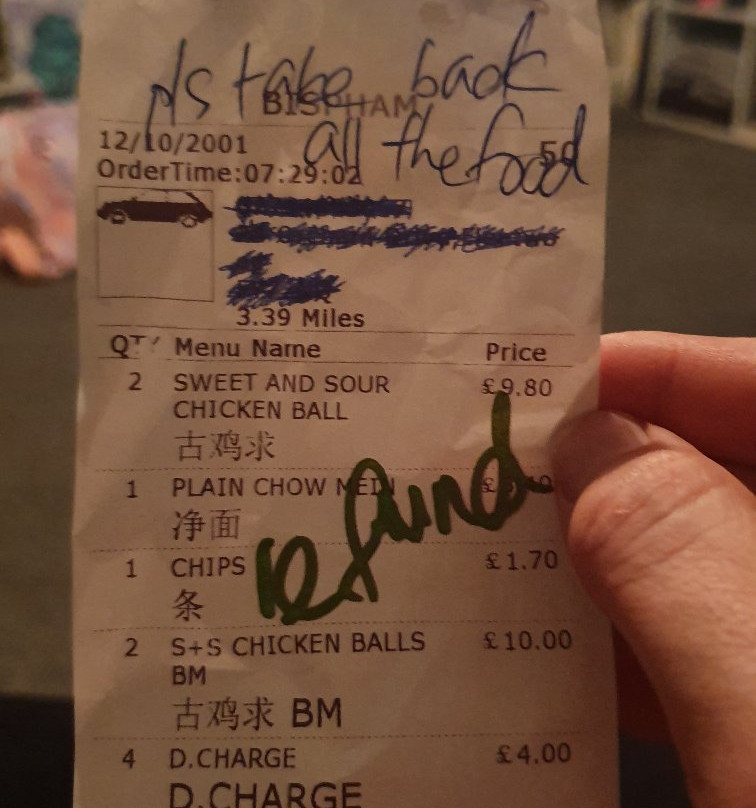 pls take back
BISPHAM
all the food
12/10/2001
50
OrderTime:07:29:02
3.39 Miles
QTY Menu Name Price
2 SWEET AND SOUR £9.80
CHICKEN BALL
古鸡求
1 PLAIN CHOW MEIN
净面
Refund
1 CHIPS £1.70
条
2 S+S CHICKEN BALLS £10.00
BM
古鸡求 BM
4 D.CHARGE £4.00
D.CHARGE